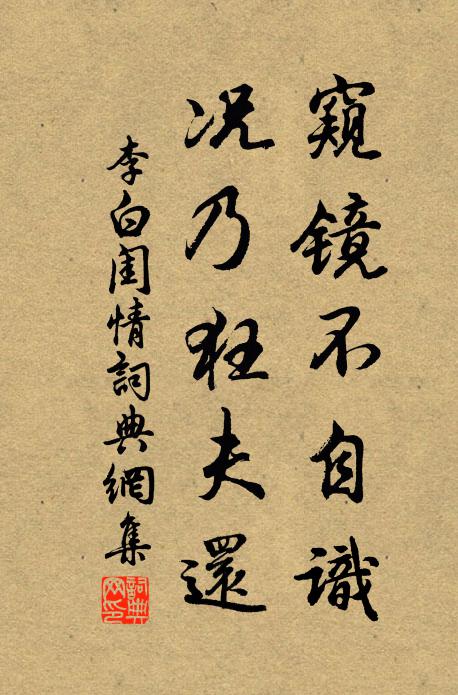 窺鏡不自識
況乃狂夫還
李白閨情詞典網集
詞典
网印